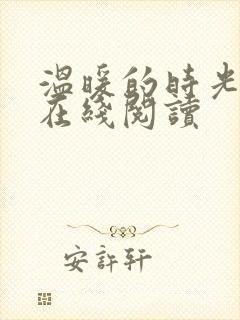 温暖的時光
在綫閱讀
安許轩